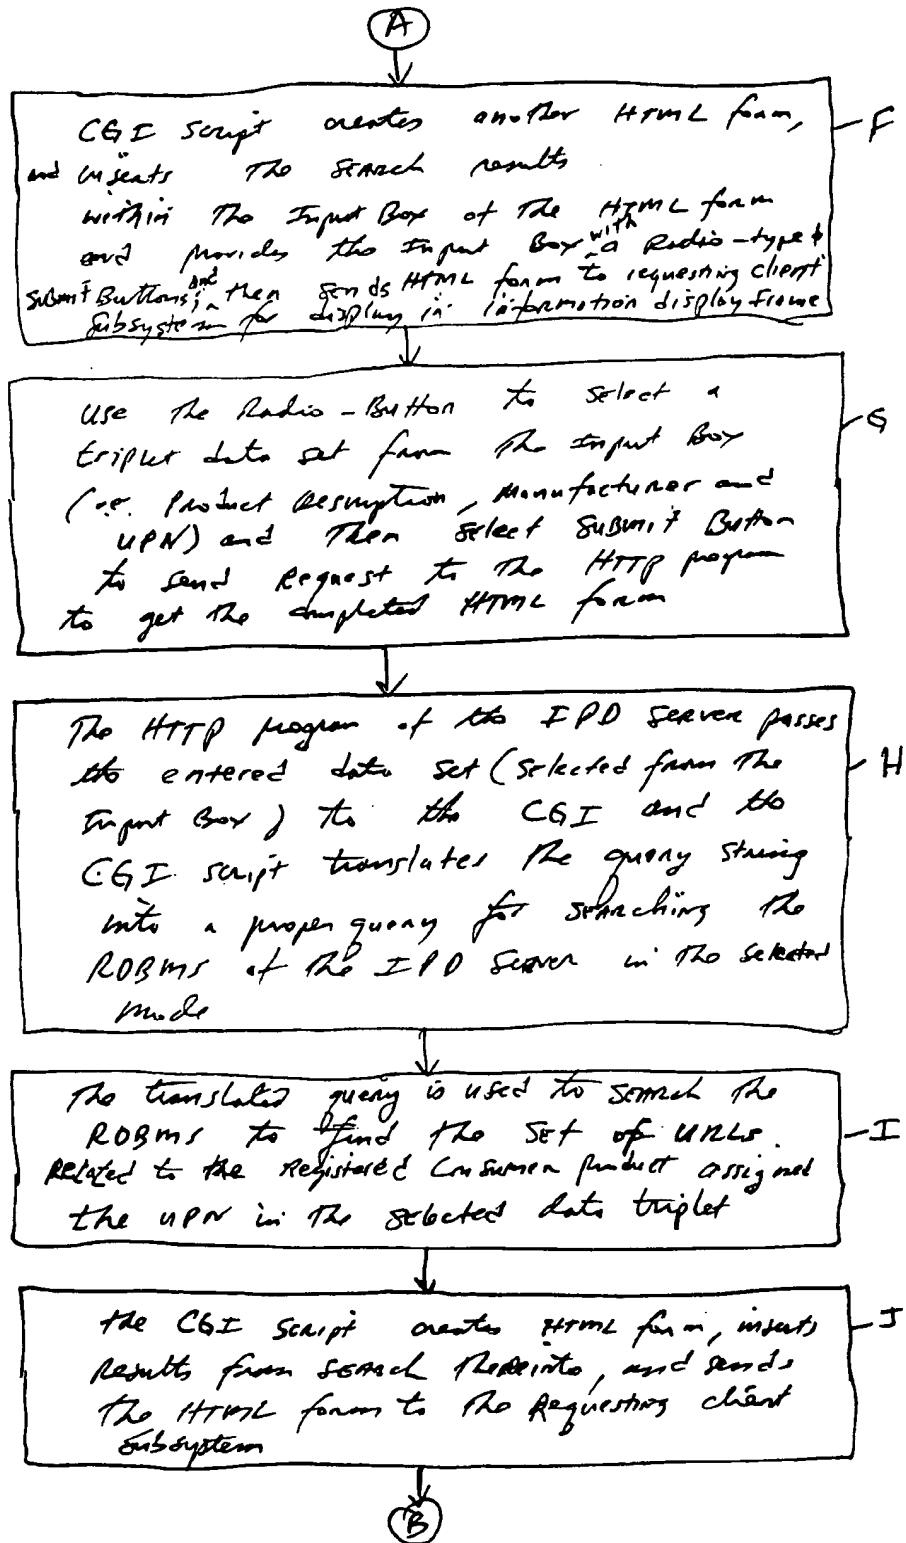 A
CGI Script creates another HTML form,
and inserts the search results
within the Input Box of the HTML form
and provides the Input Box with a Radio-type &
Submit Buttons; and then sends HTML form to requesting client
subsystem for display in information display frame
F
Use the Radio-Button to select a
triplet data set from the Input Box
(i.e. Product Description, Manufacturer and
UPN) and then select Submit Button
to send Request to the HTTP program
to get the completed HTML form
G
The HTTP program of the IPD Server passes
the entered data set (selected from the
Input Box) to the CGI and the
CGI script translates the query string
into a proper query for searching the
RDBMS of the IPD Server in the selected
mode
H
The translated query is used to search the
RDBMS to find the set of URLs
Related to the Registered Consumer product assigned
the UPN in the selected data triplet
I
the CGI Script creates HTML form, inserts
results from search thereinto, and sends
the HTML form to the Requesting client
subsystem
J
B